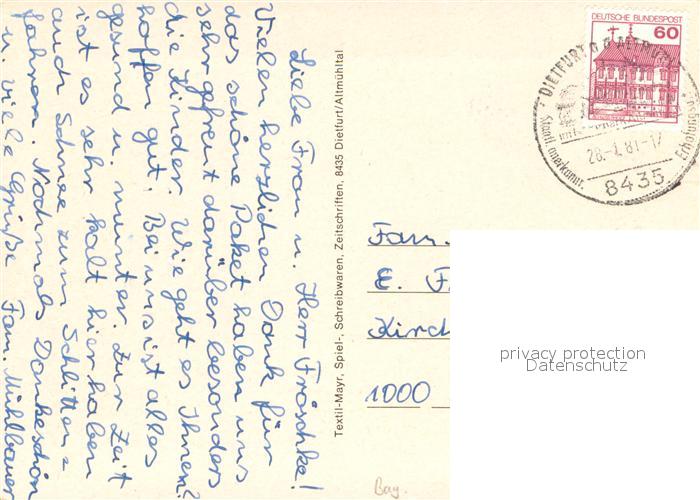 Liebe Frau u. Herr Fröschke!
Vielen herzlichen Dank für
das schöne Paket haben uns
sehr gefreut darüber besonders
die Kinder. Wie geht es Ihnen?
hoffen gut. Bei uns ist alles
gesund u. munter. Zur Zeit
ist es sehr kalt hier haben
auch Schnee zum Schlitten=
fahren. Nochmals Dankeschön
u. viele Grüße Fam. Mühlbauer
Textil-Mayr, Spiel-, Schreibwaren, Zeitschriften, 8435 Dietfurt/Altmühltal
DEUTSCHE BUNDESPOST
60
DIETFURT A D ALTMÜHL
Staatl. anerkannt. Erholungs
8435
Fam.
E. F
Kirch
1000
privacy protection
Datenschutz
Bay.